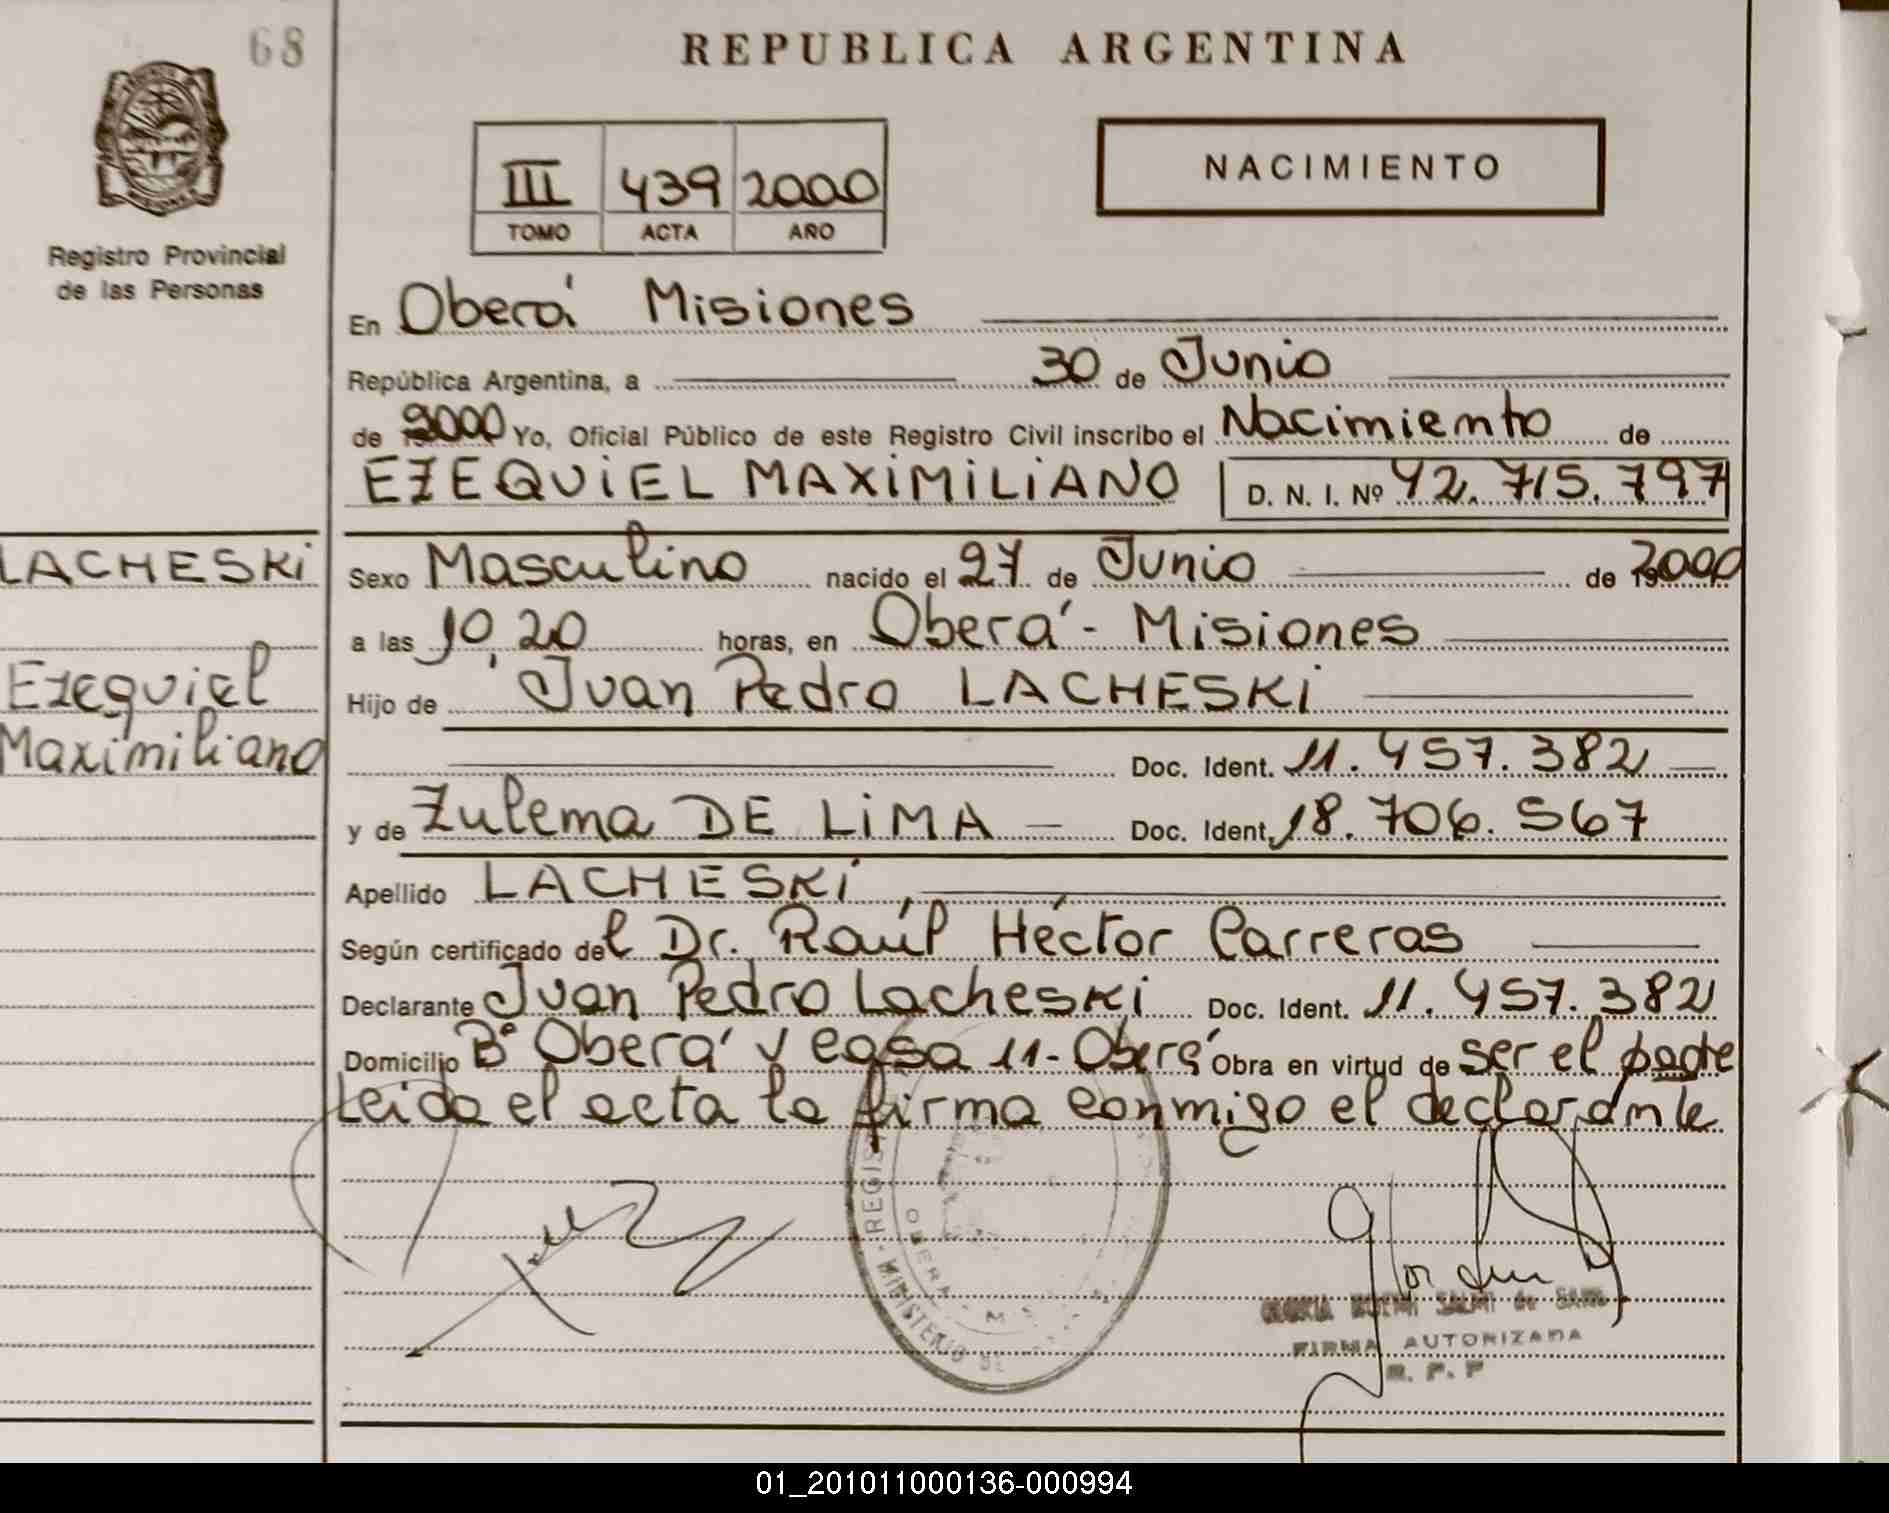 68
REPUBLICA ARGENTINA
III 439 2000
TOMO ACTA AÑO
NACIMIENTO
Registro Provincial
de las Personas
En Oberá Misiones
República Argentina, a 30 de Junio
de 2000 Yo, Oficial Público de este Registro Civil inscribo el Nacimiento de
EZEQUIEL MAXIMILIANO D. N. I. Nº 42.715.797
LACHESKI
Ezequiel
Maximiliano
Sexo Masculino nacido el 27 de Junio de 2000
a las 10,20 horas, en Oberá - Misiones
Hijo de Juan Pedro LACHESKI
Doc. Ident. 11.457.382
y de Zulema DE LIMA Doc. Ident. 18.706.567
Apellido LACHESKI
Según certificado del Dr. Raúl Héctor Carreras
Declarante Juan Pedro Lacheski Doc. Ident. 11.457.382
Domicilio Bº Oberá V casa 11 - Oberá Obra en virtud de ser el padre
Leida el acta la firma conmigo el declarante
REGIS
OBERA - M
MINISTERIO DE
GLORIA NOEMI SALMI de
FIRMA AUTORIZADA
R. P. P
01_201011000136-000994